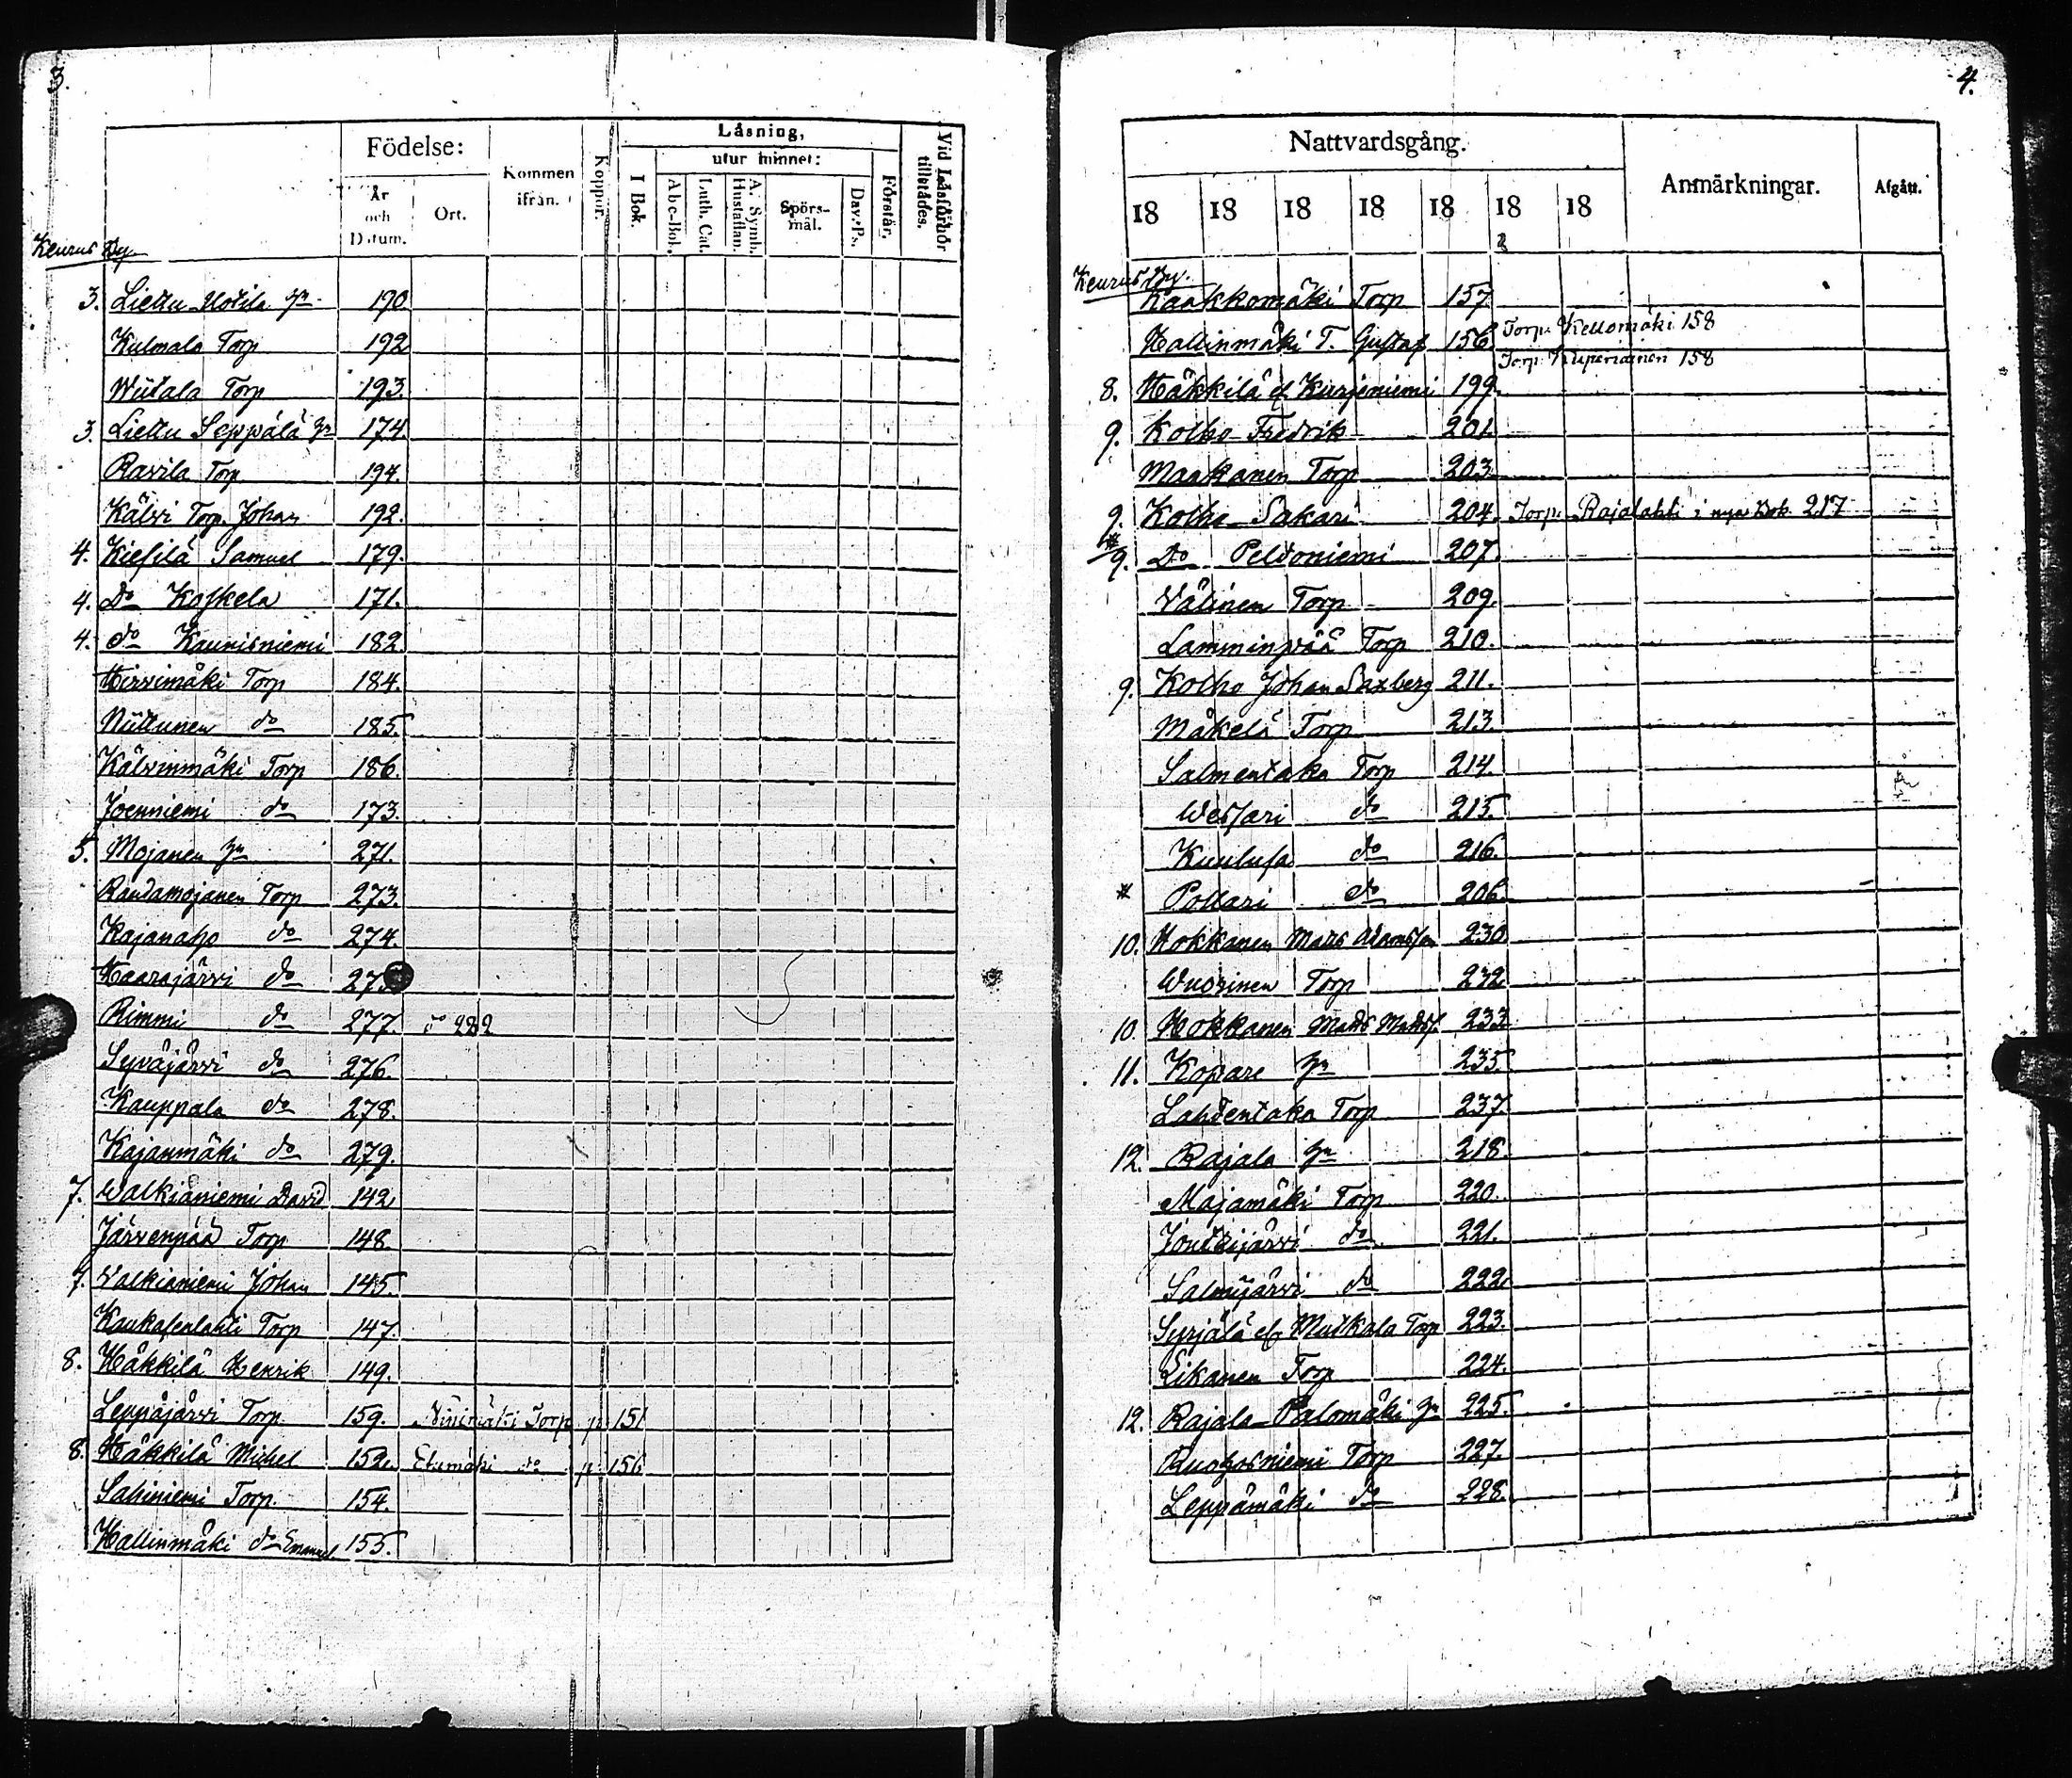 3.
Födelse:
År och Datum.
Ort.
Kommen ifrån.
Koppor.
Läsning,
utur minnet:
I Bok.
Abc-Bok.
Luth. Cat.
A. Symb. Hustaflan.
Spörs-mål.
Dav. Ps.
Förstår.
Vid Läsförhör tillstådes.
Keurus By.
3. Liettu Uotila Gn 190
Kulmala Torp 192
Wiitala Torp 193.
3. Liettu Seppälä Gn 174
Ravila Torp 194.
Kälvi Torp. Johan 192.
4. Kiefilä Samuel 179.
4. Do Koskela 171.
4. do Kaunisniemi 182
Hirvimäki Torp 184.
Niittunen do 185.
Kälvinmäki Torp 186.
Joenniemi do 173.
5. Mojanen Gn 271.
Randamojanen Torp 273.
Kajanaho do 274.
Haarajärvi do 275
Rimmi do 277. do 282
Syväjärvi do 276.
Kauppala do 278.
Kajanmäki do 279.
7. Walkianiemi David 142
Järvenpää Torp 148.
7. Walkianiemi Johan 145.
Kaukasenlahti Torp 147.
8. Häkkilä Henrik 149.
Leppäjärvi Torp. 159. Niinimäki Torp p 151
8. Häkkilä Michel 152. Elumäki do p 156
Sahiniemi Torp. 154.
Hallinmäki do Emanuel 155.
4.
Nattvardsgång.
Anmärkningar.
Afgått.
18 18 18 18 18 18 18
Keurus By.
Kaakkomäki Torp 157
Hallinmäki T. Gustaf 156 Torp. Kellomäki 158
Torp. Kuperiainen 158
8. Häkkilä el. Kurjeniemi 199.
9. Kolho Fredrik 201.
Maakanen Torp 203.
9. Kolho Sakari 204. Torp. Rajalahti i nya Bok. 217
9. Do Peldoniemi 207.
Välinen Torp 209.
Lamminpää Torp 210.
9. Kolho Johan Saxberg 211.
Mäkelä Torp 213.
Salmentaka Torp 214.
Wessari do 215.
Kuulusa do 216.
# Pollari do 206.
10. Hokkanen Matts Adamsson 230
Wuorinen Torp 232
10. Hokkanen Matts Mattsf. 233
11. Kopare Gn 235.
Lahdentaka Torp 237.
12. Rajala Gn 218.
Majamäki Torp 220.
Jouttijärvi do 221.
Salmijärvi do 222
Syrjälä el. Mutkala Torp 223.
Likanen Torp 224.
12. Rajala Palomäki Gn 225.
Ruohosniemi Torp 227.
Leppämäki do 228.